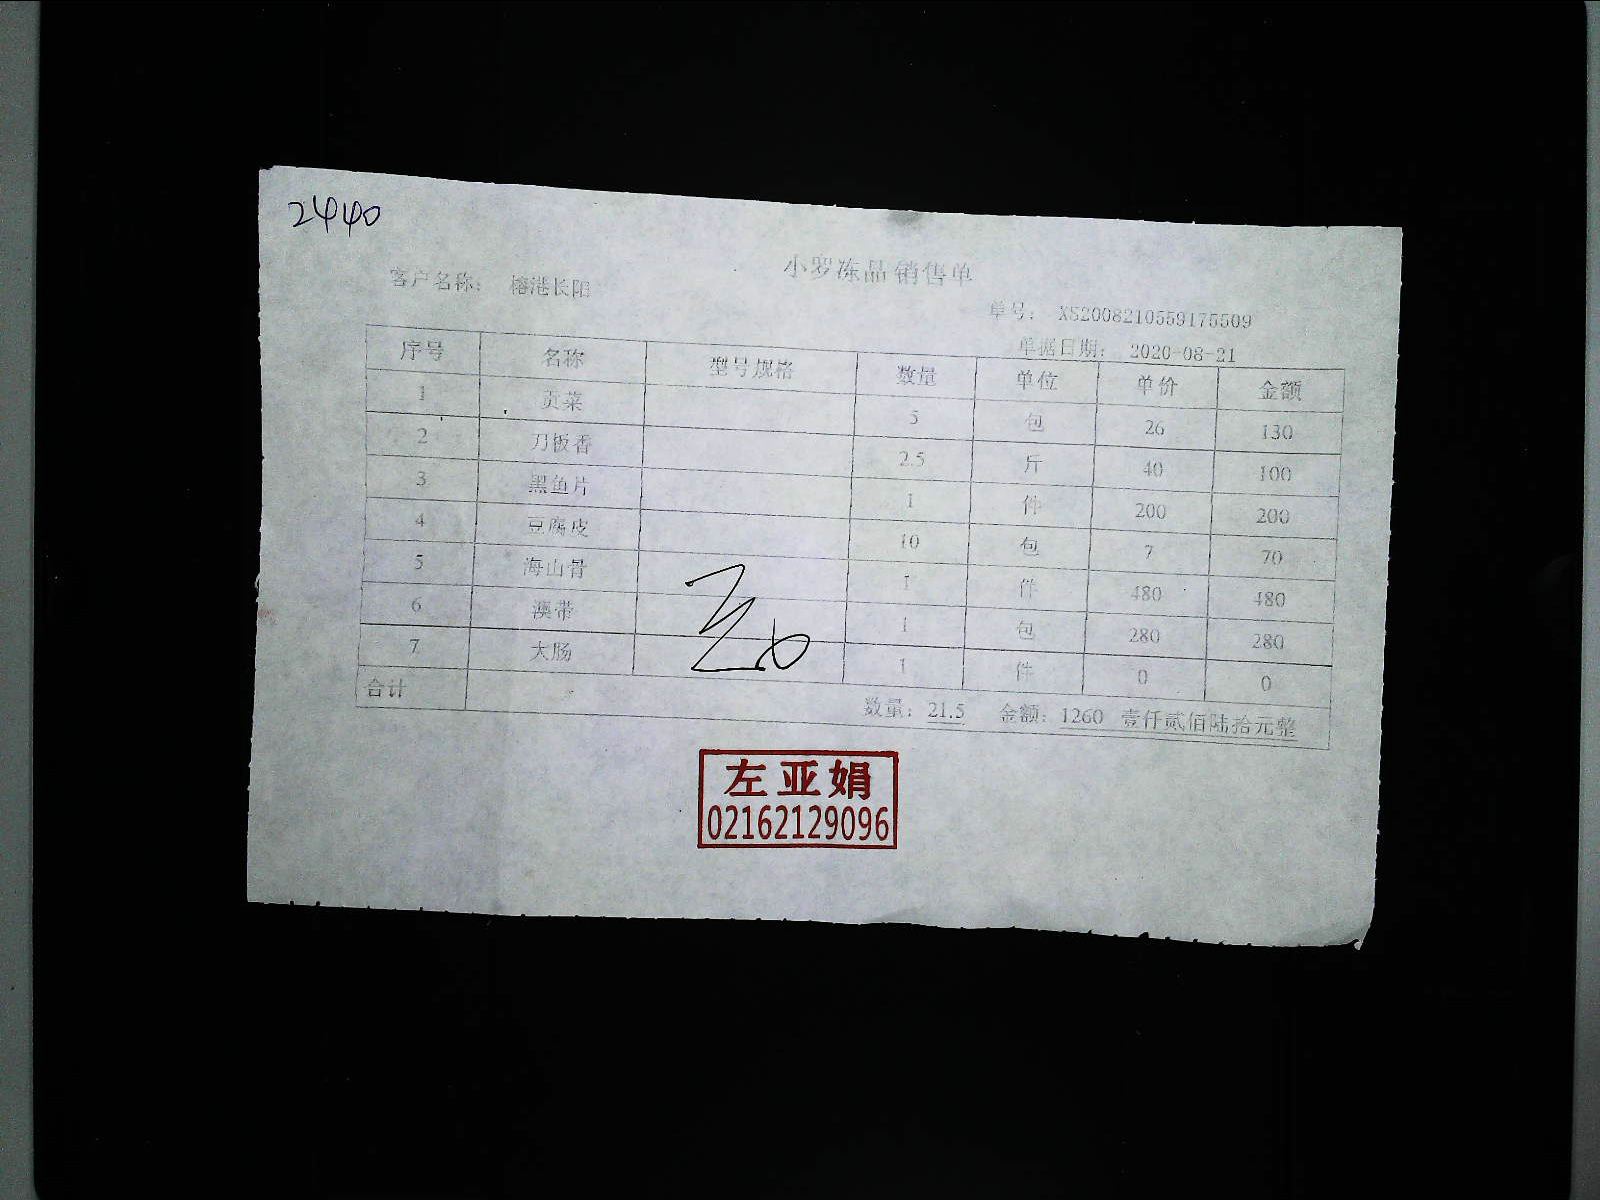 2440
小罗冻品销售单
客户名称： 榕港长阳
单号： XS2008210559175509
单据日期： 2020-08-21
序号 名称 型号规格 数量 单位 单价 金额
1 贡菜 5 包 26 130
2 刀板香 2.5 斤 40 100
3 黑鱼片 1 件 200 200
4 豆腐皮 10 包 7 70
5 海山骨 1 件 480 480
6 澳带 1 包 280 280
7 大肠 1 件 0 0
合计 数量：21.5 金额：1260 壹仟贰佰陆拾元整
左亚娟
02162129096